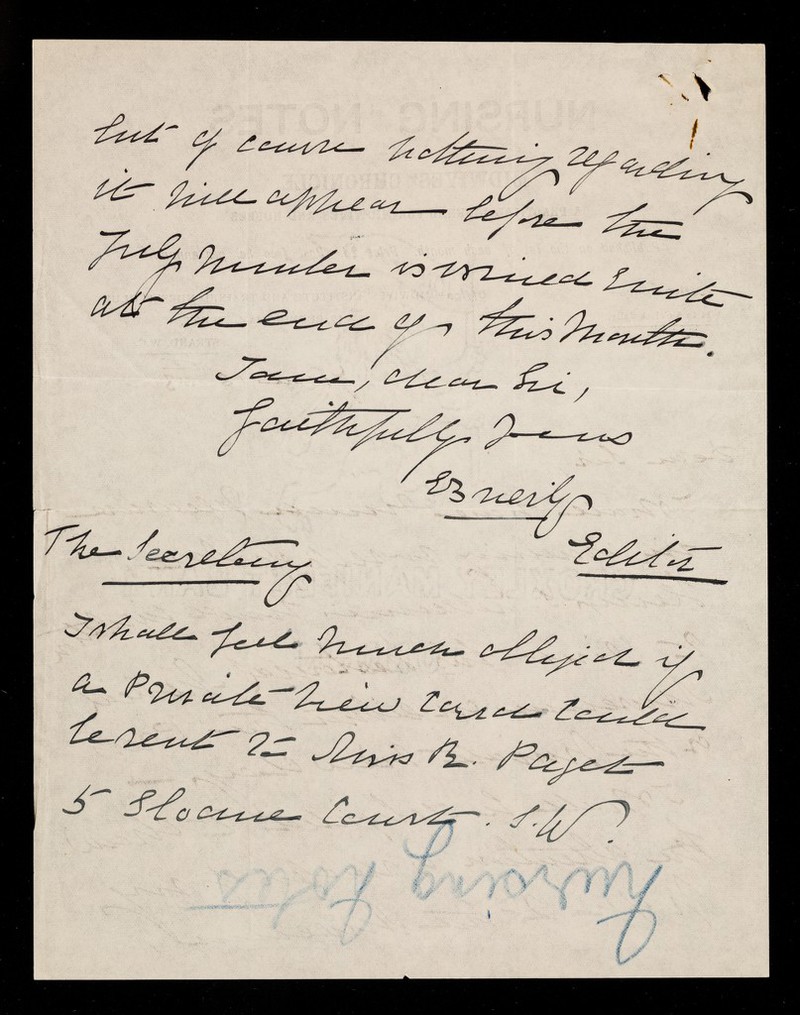 but of course nothing regarding
it will appear before the
July number is issued quite
at the end of this month.
I am, dear Sir,
Faithfully Yours
Editor
The Secretary
I shall feel much obliged if
a Private View Card could
be sent to Miss R. Paget
5 Sloane Court. S.W.
Nursing Notes
NURSING NOTES